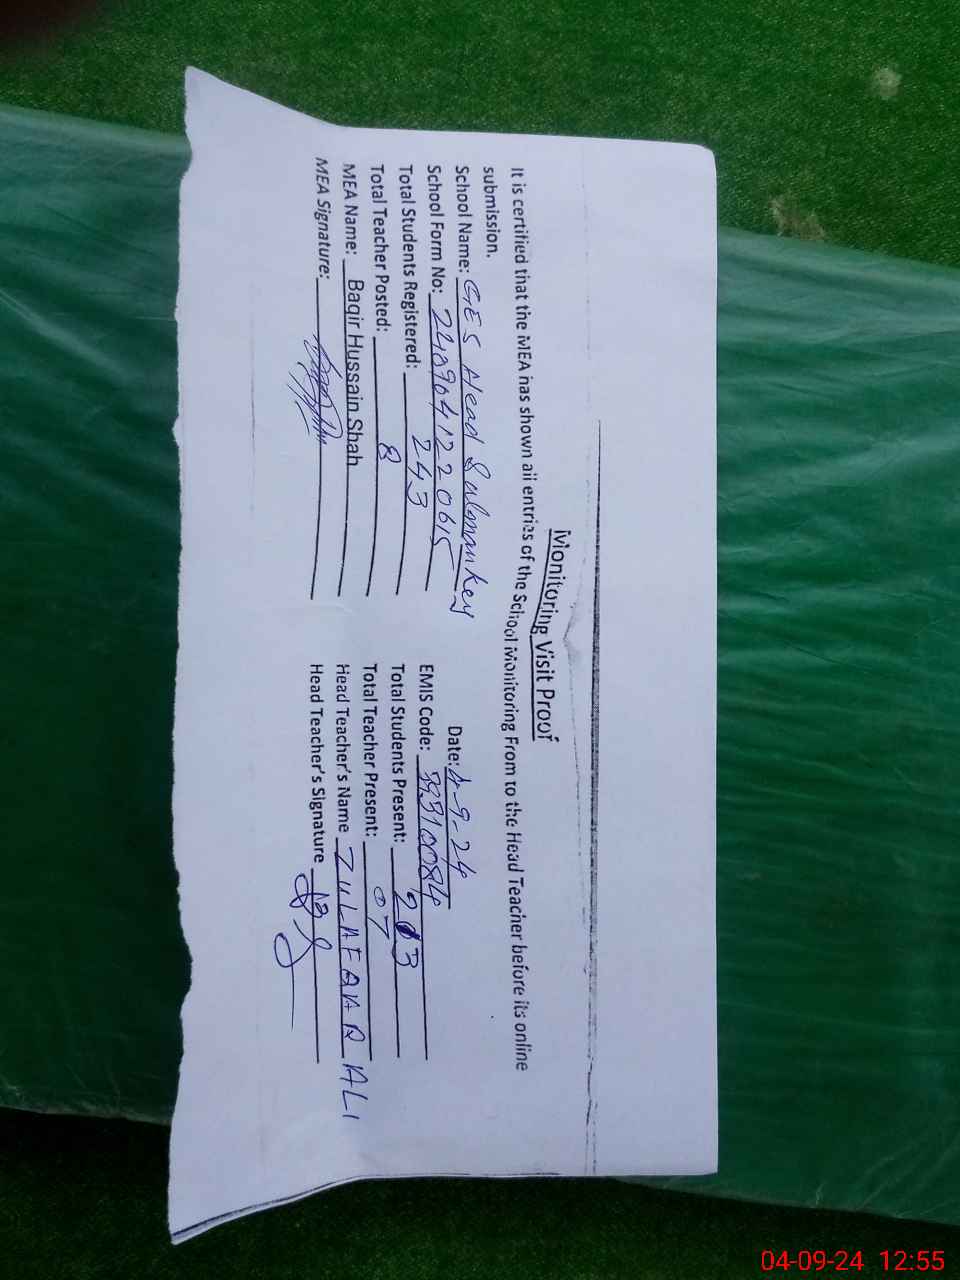 Monitoring Visit Proof
It is certified that the MEA has shown all entries of the School Monitoring From to the Head Teacher before its online
submission.
Date: 4-9-24
School Name: GES Head Sulmankey
EMIS Code: 39310084
School Form No: 22409641220615
Total Students Present: 213
Total Students Registered: 243
Total Teacher Present: 07
Total Teacher Posted: 8
Head Teacher's Name ZULAFQAR ALI
MEA Name: Baqir Hussain Shah
Head Teacher's Signature
MEA Signature:
04-09-24 12:55